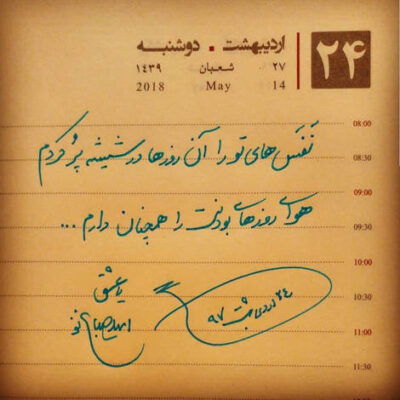 ۲۴
اردیبهشت . دوشنبه
۲۷ شعبان ۱۴۳۹
2018 May 14
08:00
نَفَس های تو را آن روزها در شیشه پُر کردم
08:30
09:00
هوای روزهای بودنت را همچنان دارم ...
09:30
10:00
یا عشق
10:30
۲۴ اردیبهشت ۹۷
11:00
11:30